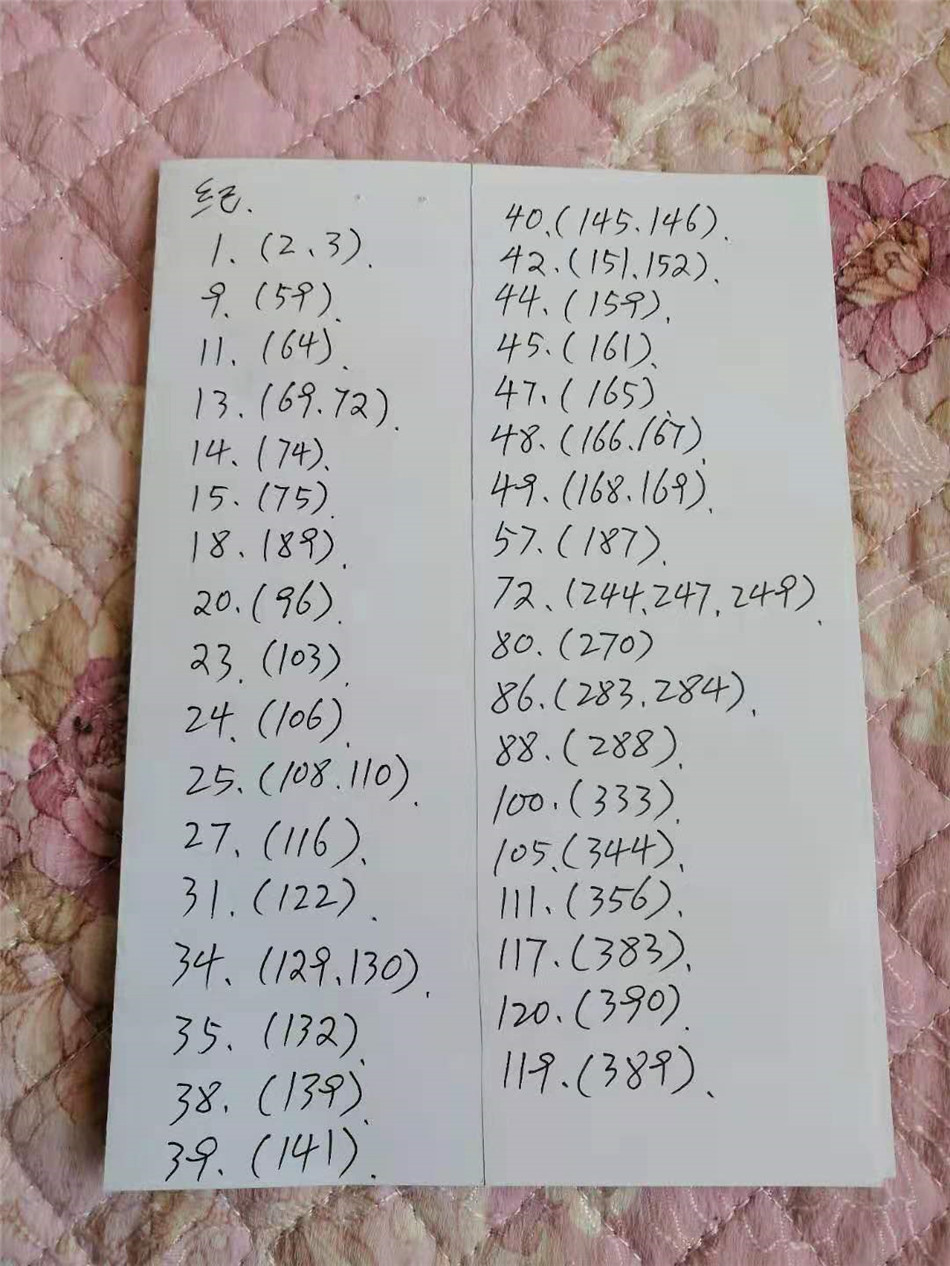 纪.
1、(2、3).
9、(59).
11、(64)、
13、(69.72).
14、(74)、
15、(75).
18、(89)、
20、(96)、
23、(103)、
24、(106)、
25、(108.110)、
27、(116)、
31、(122)、
34、(129、130)、
35、(132)、
38、(139)、
39、(141)、
40、(145、146)、
42、(151、152)、
44、(159)、
45、(161)、
47、(165)、
48、(166.167)、
49、(168、169)、
57、(187)、
72、(244、247、249)、
80、(270)
86、(283、284)、
88、(288)、
100、(333)、
105、(344)、
111、(356)、
117、(383)、
120、(390)、
119、(389)、